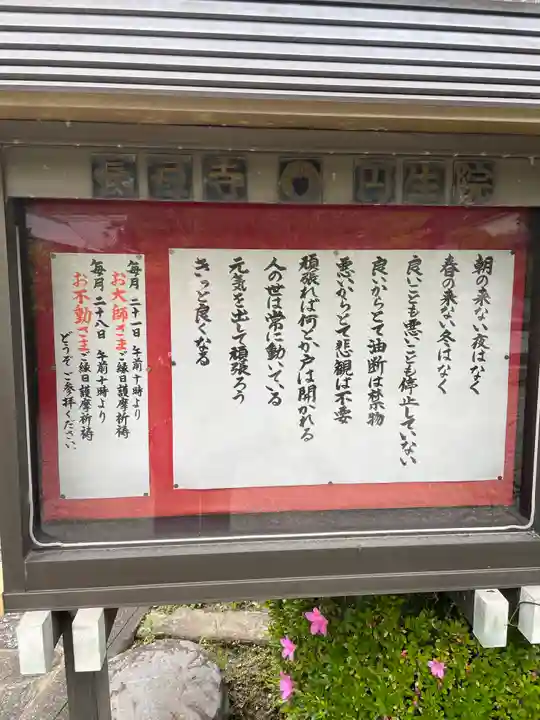 長徳寺 円生院
朝の来ない夜はなく
春の来ない冬はなく
良いことも悪いことも停止していない
良いからとて油断は禁物
悪いからとて悲観は不要
頑張れば何とか戸は開かれる
人の世は常に動いている
元気を出して頑張ろう
きっと良くなる
毎月 二十一日 午前十時より
お大師さまご縁日護摩祈祷
毎月 二十八日 午前十時より
お不動さまご縁日護摩祈祷
どうぞご参拝ください